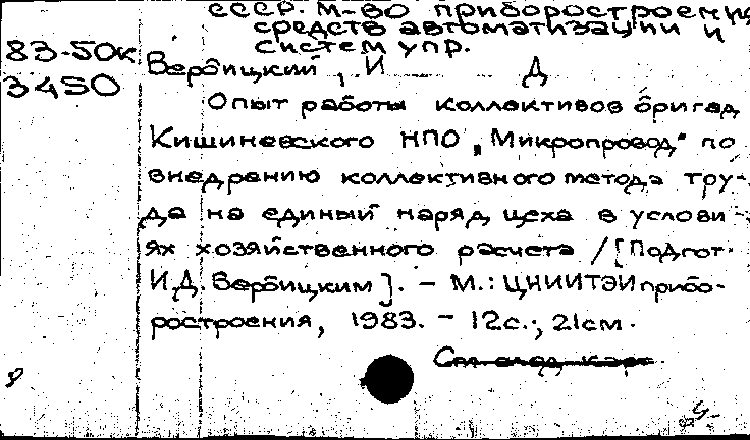 СССР. М-во приборостроения,
средств автоматизации и
систем упр.
83-50к
3450
Вербицкий, И Д
Опыт работы коллективов бригад
Кишиневского НПО „Микропровод" по
внедрению коллективного метода тру-
да на единый наряд цеха в услови-
ях хозяйственного расчета / [Подгот.
И.Д. Вербицким]. - М.: ЦНИИТЭИприбо-
ростроения, 1983. - 12с.; 21см.
См. след. карт.